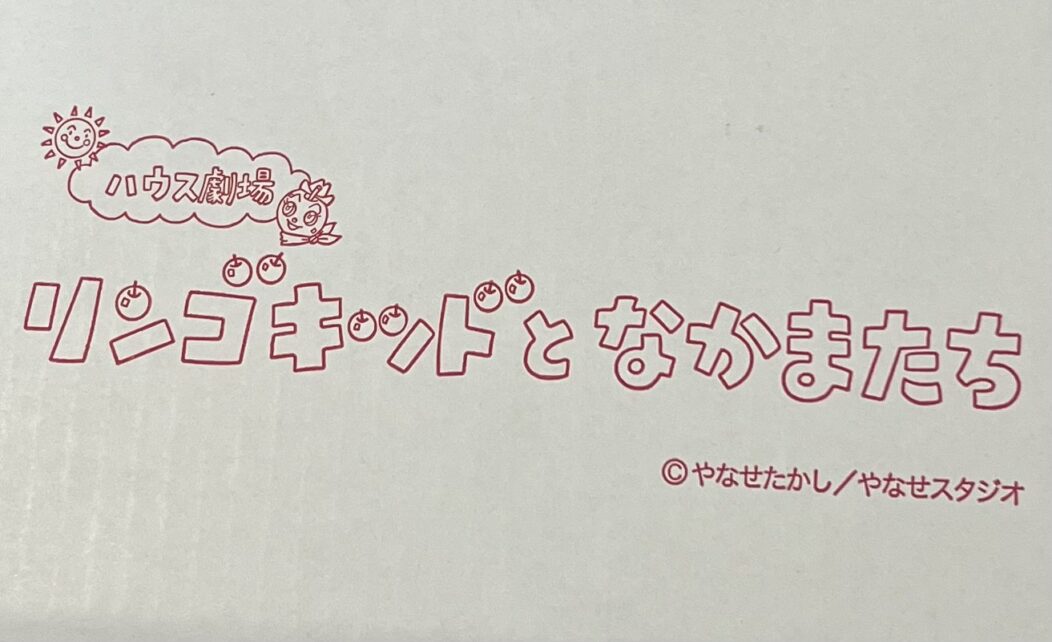 ハウス劇場
リンゴキッドとなかまたち
©やなせたかし／やなせスタジオ